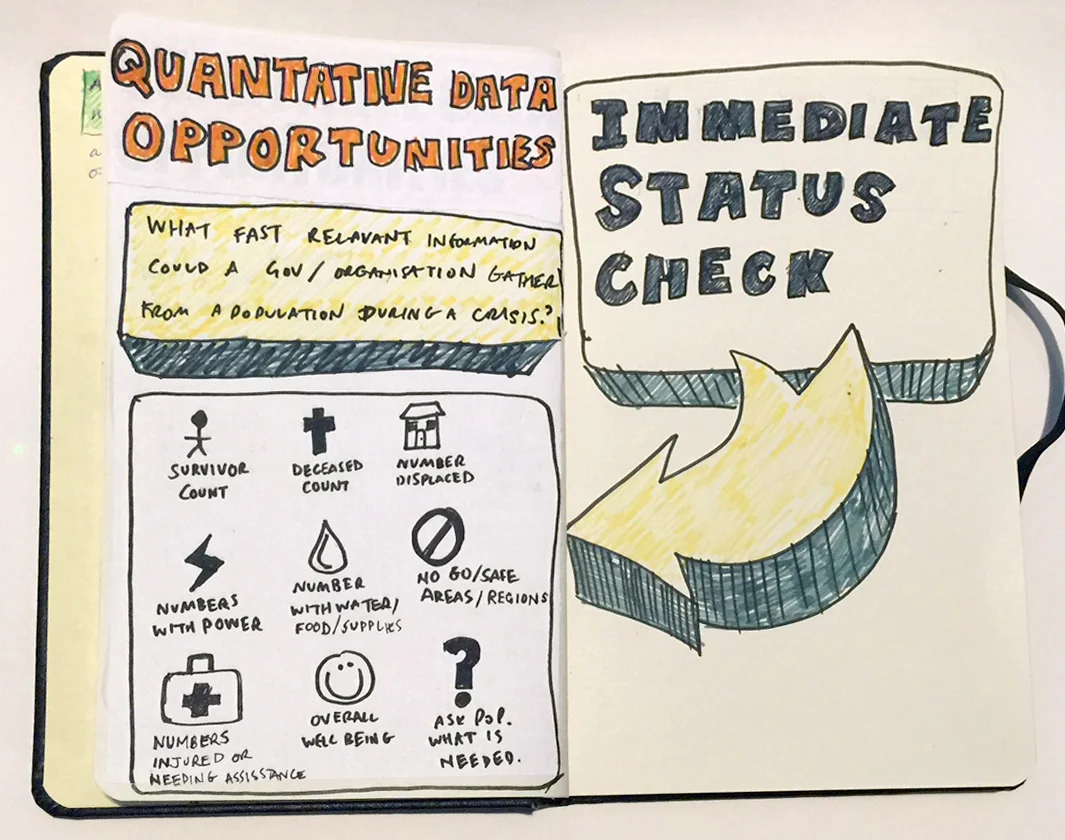 QUANTATIVE DATA
OPPORTUNITIES
WHAT FAST RELAVANT INFORMATION
COULD A GOV/ORGANISATION GATHER
FROM A POPULATION DURING A CRISIS?
SURVIVOR
COUNT
DECEASED
COUNT
NUMBER
DISPLACED
NUMBERS
WITH POWER
NUMBER
WITH WATER/
FOOD/SUPPLIES
NO GO/SAFE
AREAS/REGIONS
NUMBERS
INJURED OR
NEEDING ASSISSTANCE
OVERALL
WELL BEING
ASK POP.
WHAT IS
NEEDED.
IMMEDIATE
STATUS
CHECK